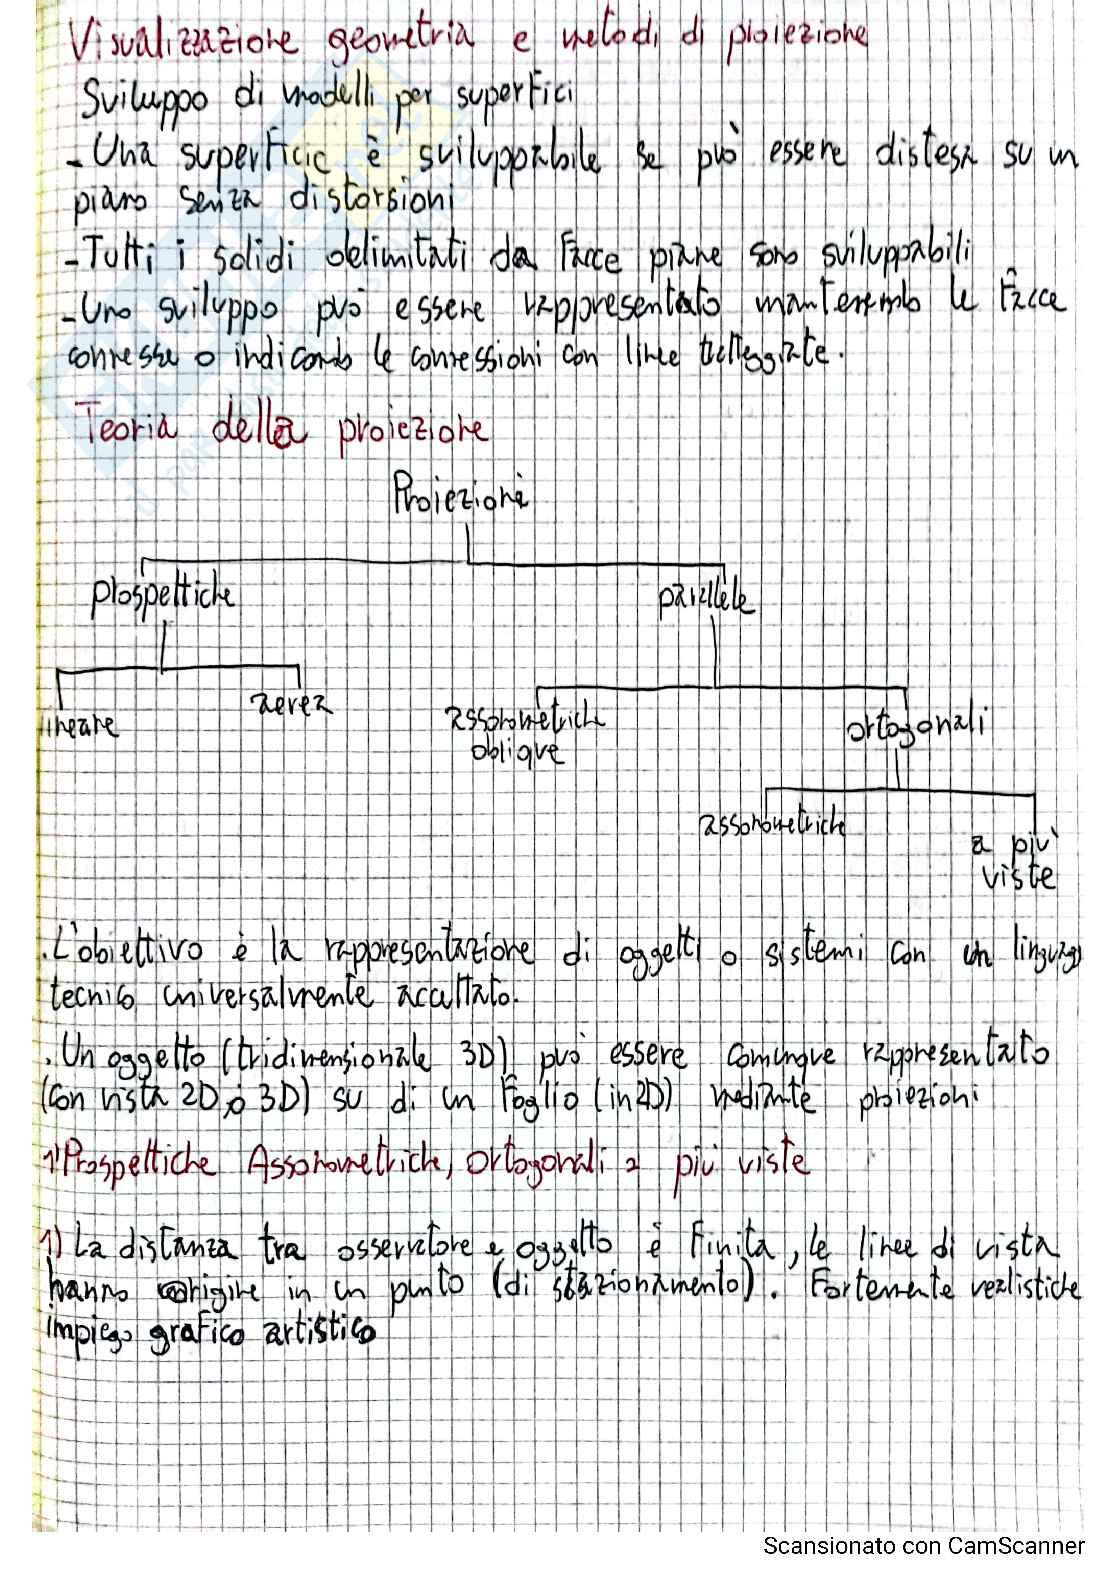 Visualizzazione geometria e metodi di proiezione
Sviluppo di modelli per superfici
- Una superficie è sviluppabile se può essere distesa su un
piano senza distorsioni
- Tutti i solidi delimitati da facce piane sono sviluppabili
- Uno sviluppo può essere rappresentato mantenendo le facce
connesse o indicando le connessioni con linee tratteggiate.
Teoria della proiezione
Proiezioni
prospettiche
parallele
lineare
aerea
assonometriche
oblique
ortogonali
assonometriche
a più
viste
. L'obiettivo è la rappresentazione di oggetti o sistemi con un linguag
tecnico universalmente accettato.
. Un oggetto (tridimensionale 3D) può essere comunque rappresentato
(con vista 2D o 3D) su di un foglio (in 2D) mediante proiezioni
1) Prospettiche Assonometriche, ortogonali a più viste
1) La distanza tra osservatore e oggetto è finita, le linee di vista
hanno origine in un punto (di stazionamento). Fortemente realistiche
impiego grafico artistico
Scansionato con CamScanner